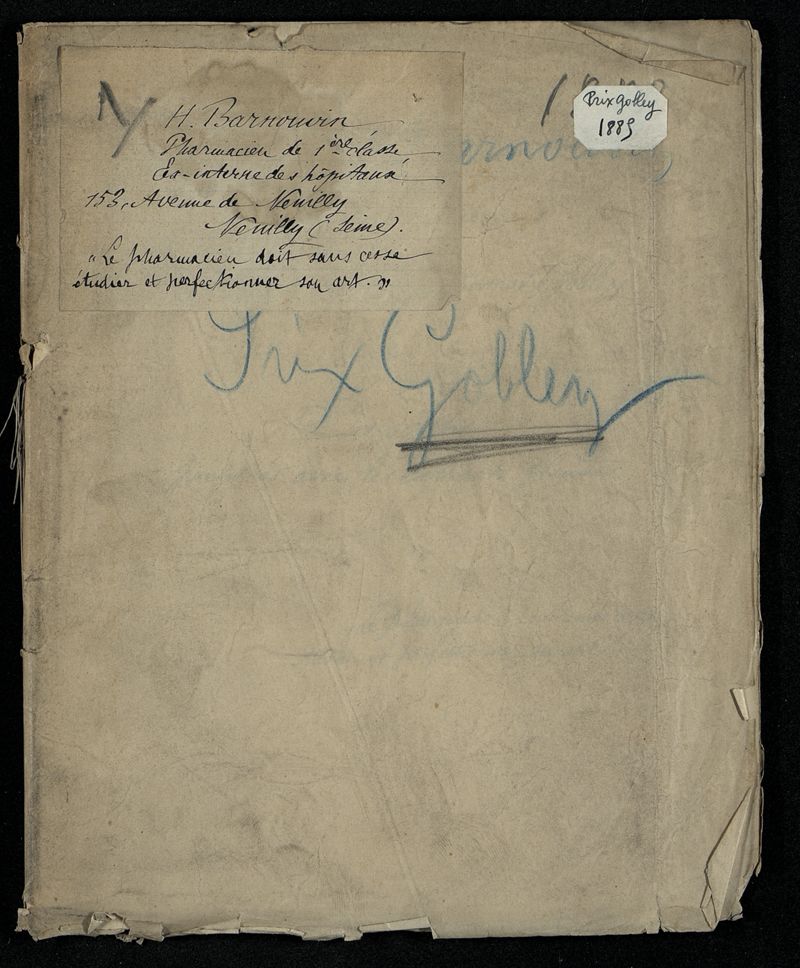 H. Barnouvin
Pharmacien de 1ère classe
Ex-interne des hôpitaux
153, Avenue de Neuilly
Neuilly (Seine).
"Le pharmacien doit sans cesse
étudier et perfectionner son art."
Prix Gobley
1889
Prix Gobley